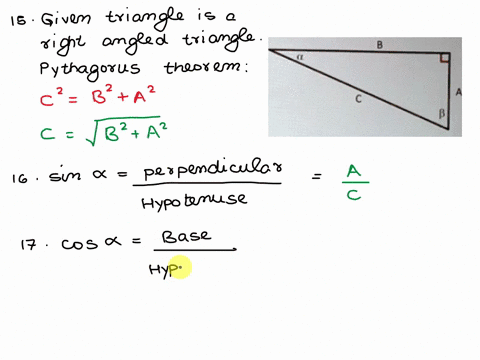 15. Given triangle is a
right angled triangle.
Pythagorus theorem:
C² = B² + A²
C = √B² + A²
B
α
C
A
β
16. sin α = perpendicular / Hypotenuse = A / C
17. cos α = Base / Hyp